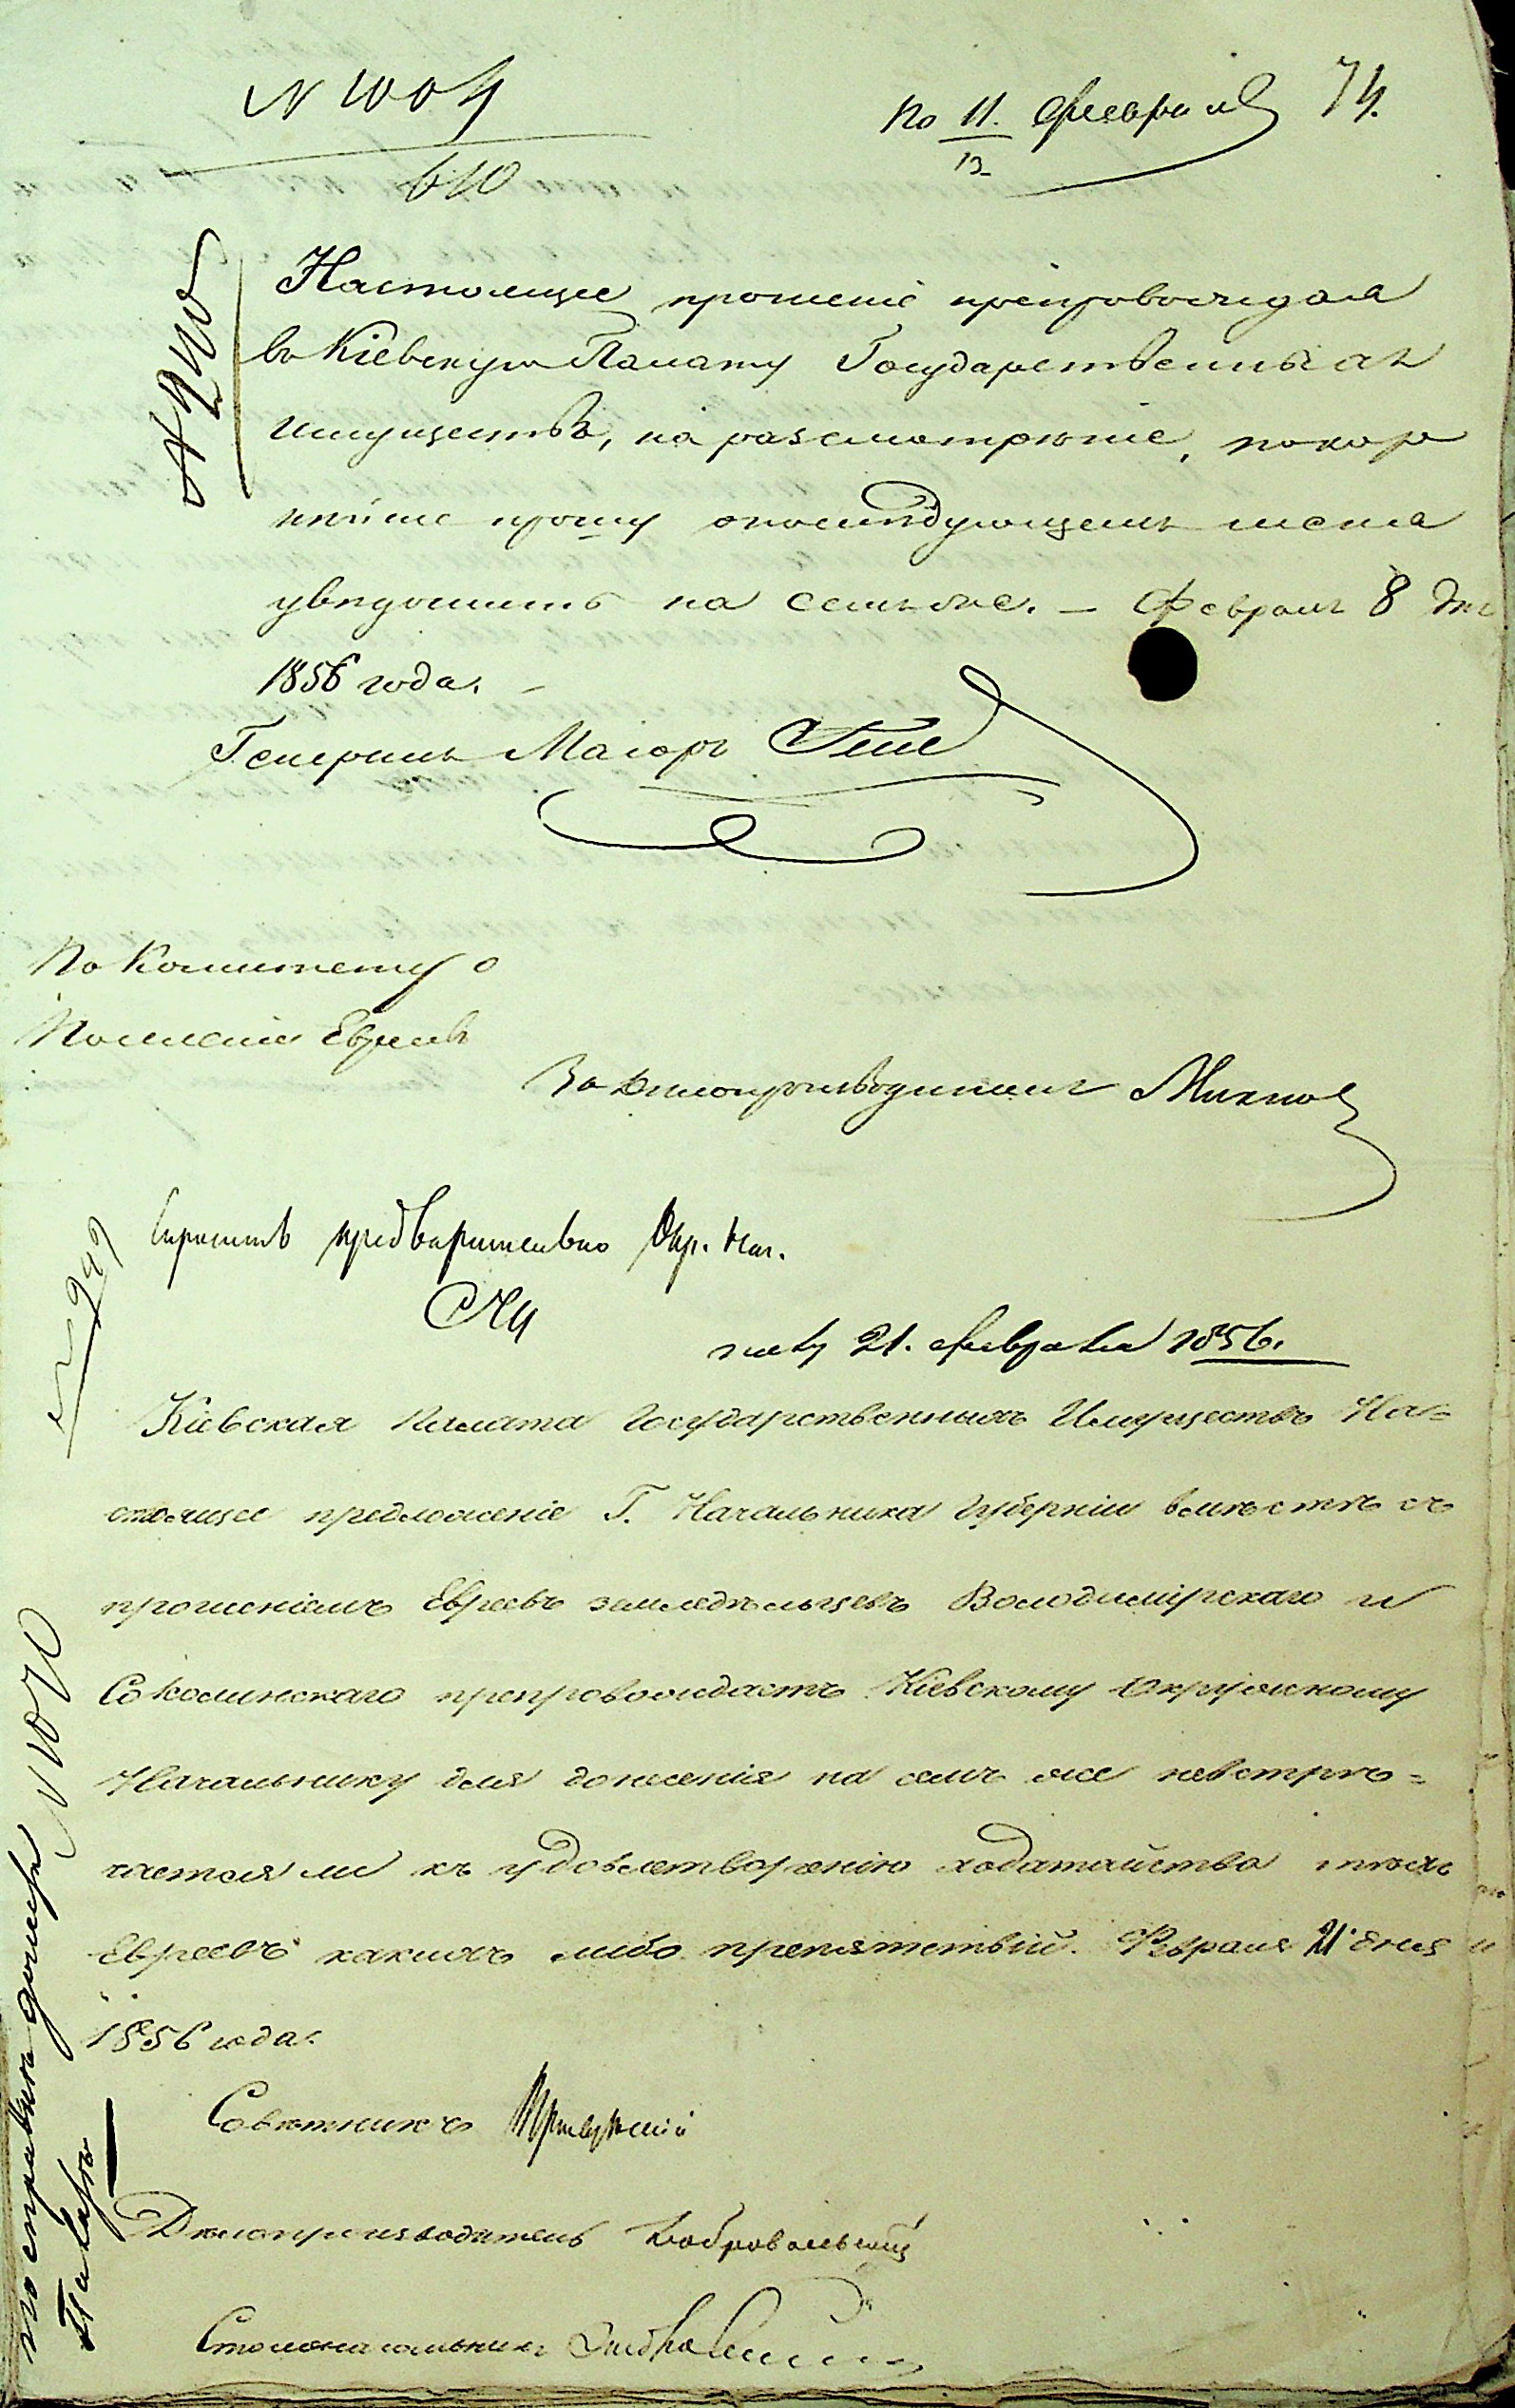 N 1004
610
по 11. Февраля 74.
13
Настоящее прошеніе препровождая
въ Кіевскую Палату Государственныхъ
Имуществъ, на разсмотрѣніе, покор
нѣйше прошу опослѣдующемъ меня
увѣдомить на семъ же. – Февраля 8 дня
1856 года. –
Генералъ Маіоръ Гессе
По Комитету о
Поселеніи Евреевъ
За Дѣлопроизводителя
Спросить предварительно Окр. Нач.
21. Февраля 1856.
Кіевская Палата Государственныхъ Имуществъ На=
стоящее предложеніе Г. Начальника Губерніи вмѣстѣ съ
прошеніемъ Евреевъ земледѣльцевъ Володимірскаго и
Соколинскаго препровождаетъ Кіевскому Окружному
Начальнику для донесенія на семъ же невстрѣ=
чается ли къ удовлетворенію ходатайства тѣхъ
Евреевъ какихъ либо препятствій. Февраля 21 дня
1856 года.
Совѣтникъ
Дѣлопроизводитель Добровольскій
Столоначальникъ
N 1070